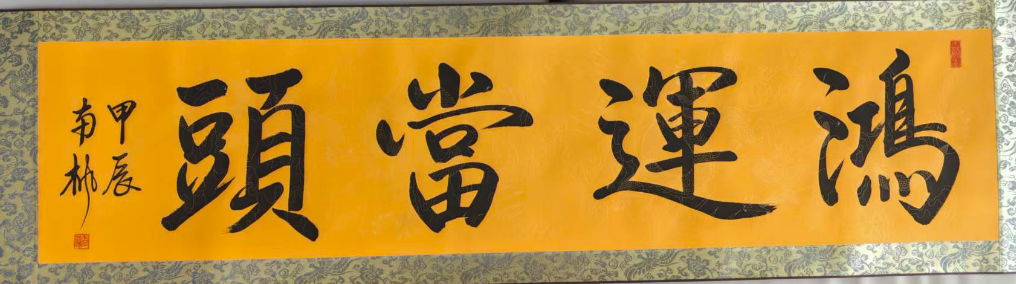 鴻運當頭
甲辰
南彬